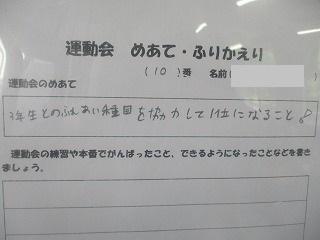 運動会 めあて・ふりかえり
(10)番 名前(
運動会のめあて
3年生とのふれあい種目を協力して1位になること!
運動会の練習や本番でがんばったこと、できるようになったことなどを書き
ましょう。